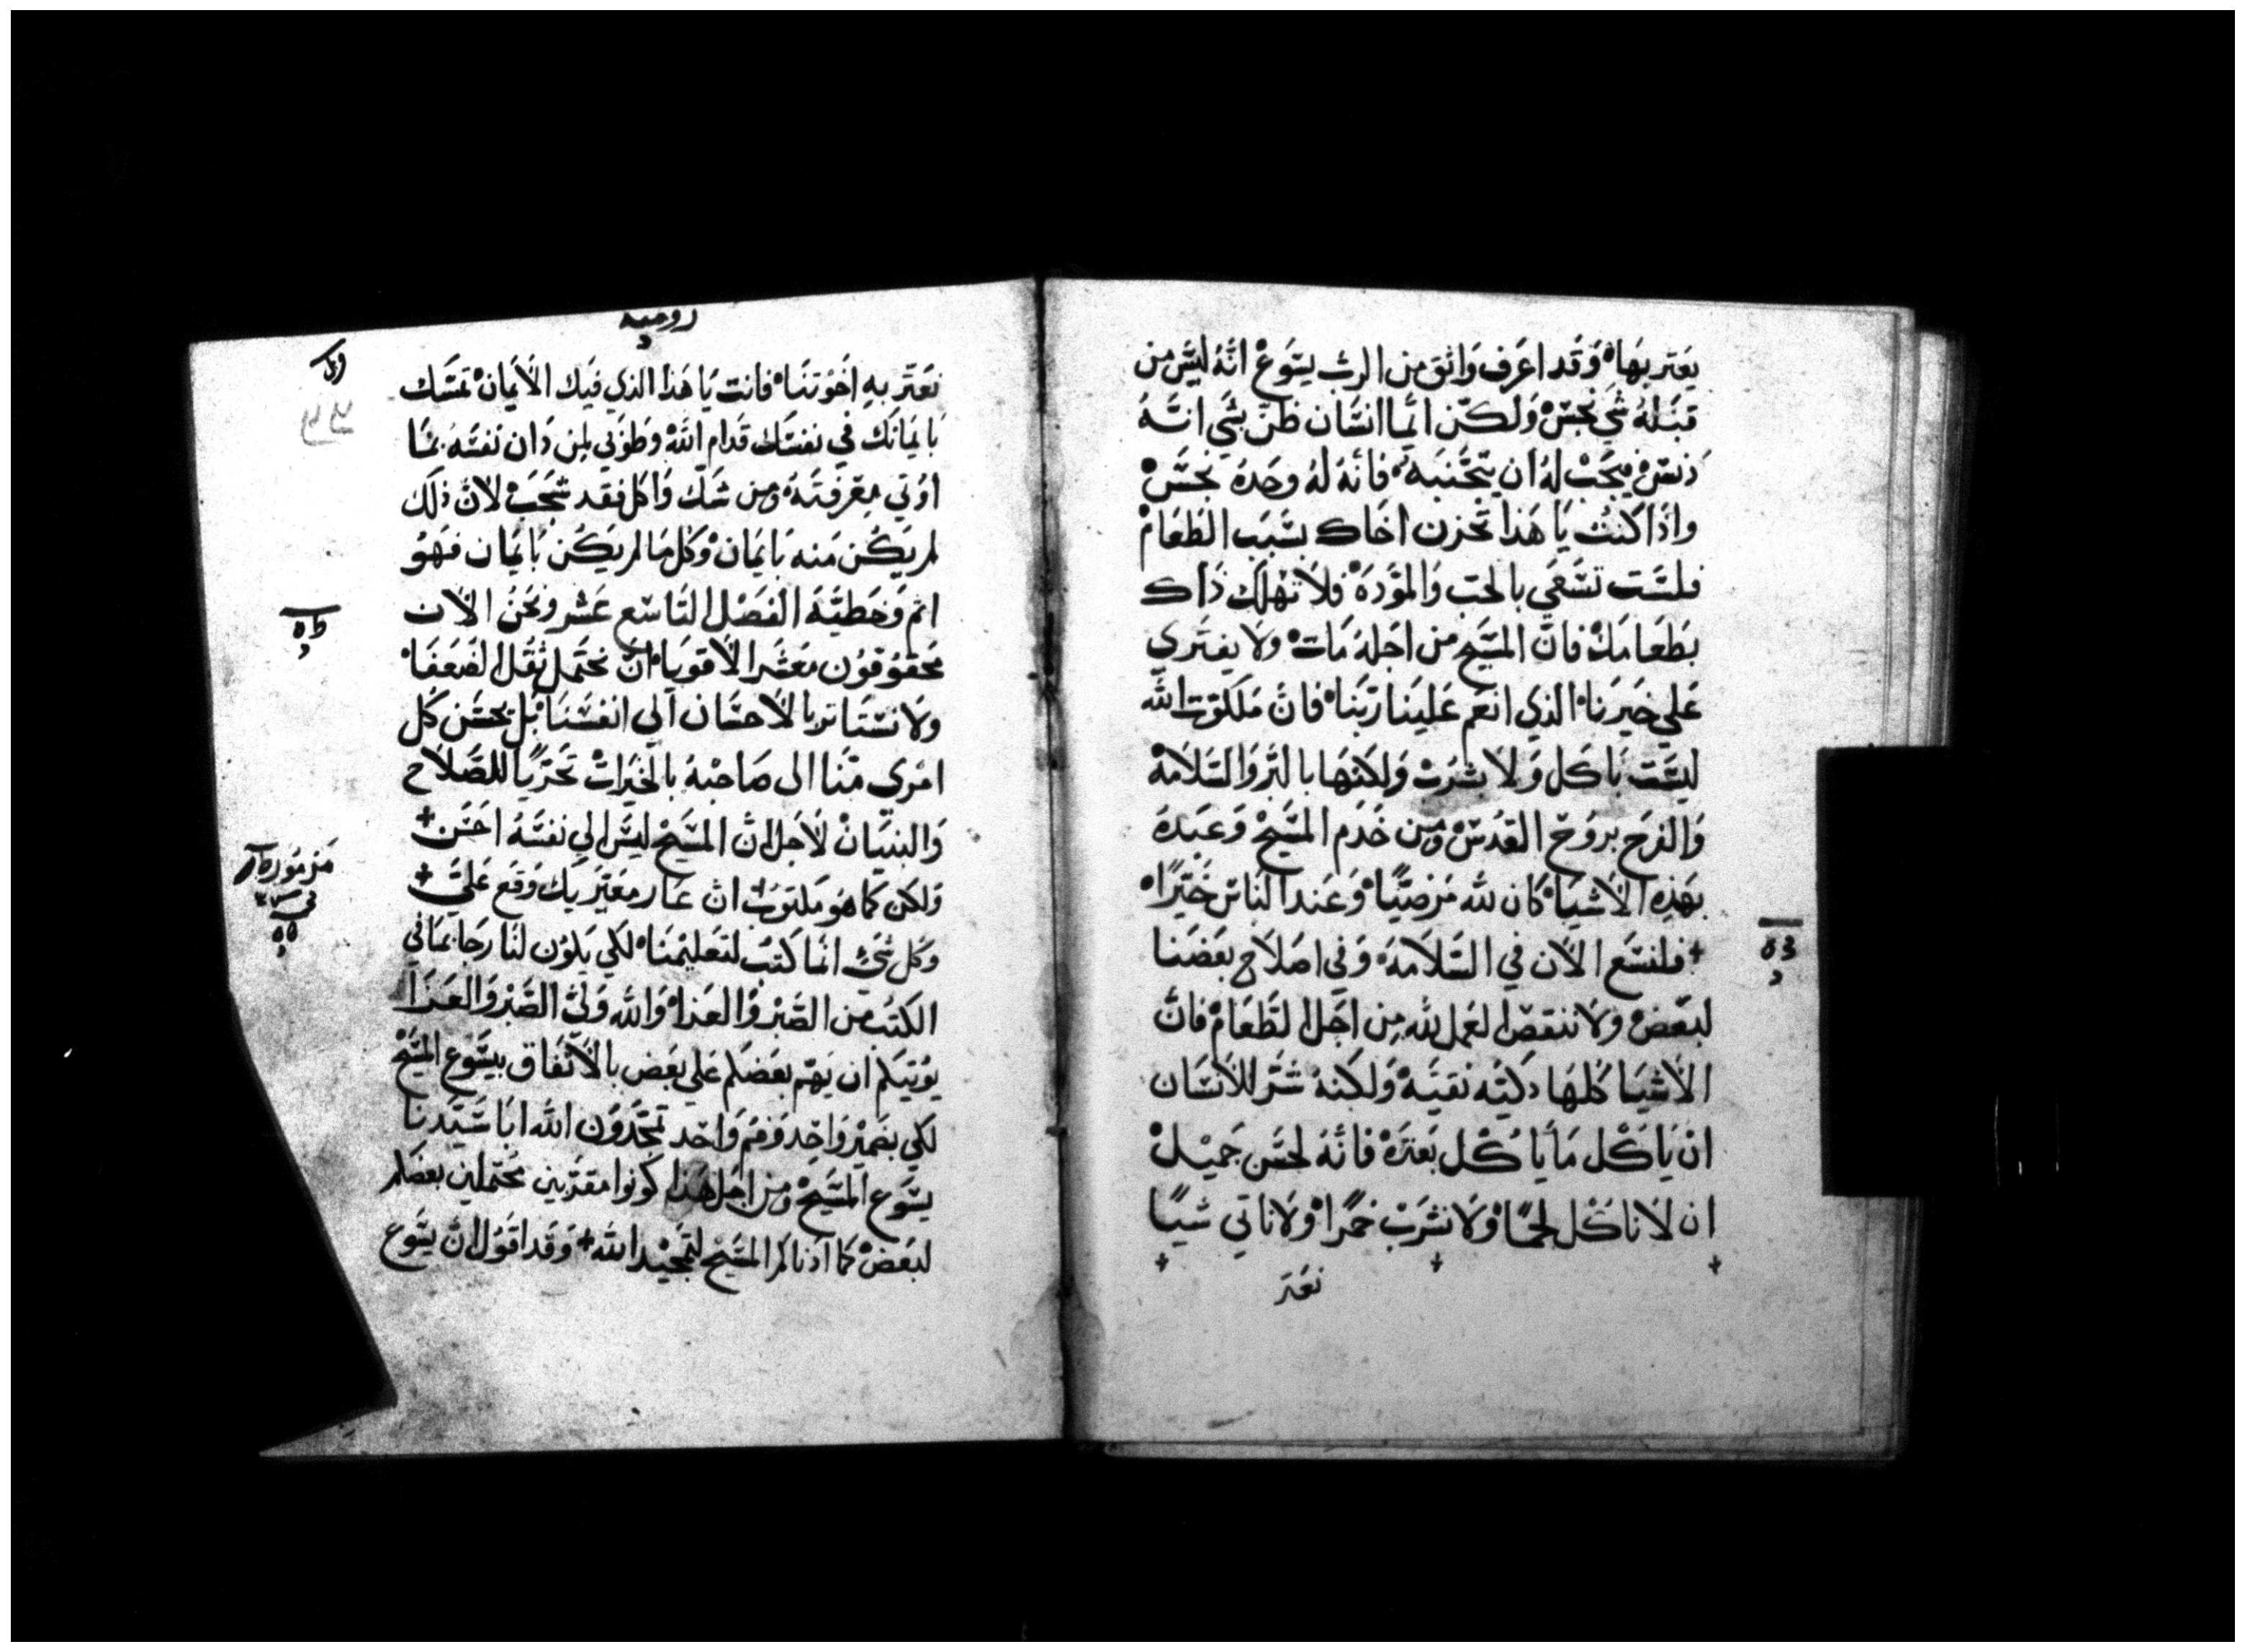 يعتر بها وقد اعرف واثق من الرب يسوع انه ليس من
قبله شي نجس ولكن ايما انسان ظن بشي انه
دنس يجب له ان يتجنبه فانه له وحده نجس
واذا كنت يا هذا تحزن اخاك بسبب الطعام
فلست تسعي بالحب والمودة فلا تهلك ذاك
بطعامك فان المسيح من اجله مات ولا يفتري
علي خيرنا الذي انعم علينا ربنا فان ملكوت الله
ليست باكل ولا بشرب ولكنها بالبر والسلامة
والفرح بروح القدس ومن خدم المسيح وعبده
بهذه الاشيا كان لله مرضيًا وعند الناس خيرًا
+ فلنسع الان في السلامة وفي اصلاح بعضنا
لبعض ولا ننقض العمل لله من اجل الطعام فان
الاشيا كلها دكيه نقيه ولكنه شر للانسان
ان ياكل ما ياكل بعترة فانه لحسن جميل
ان لا ناكل لحمًا ولا نشرب خمرًا ولا ناتي شيًا
نعتر
روميه
نعتر به اخوتنا فانت يا هذا الذي فيك الايمان تمسك
بايمانك في نفسك قدام الله وطوبي لمن دان نفسه بما
اوتي معرفته ومن شك واكل فقد شجب لان ذلك
لم يكن منه بايمان وكل ما لم يكن بايمان فهو
اثم وخطيّة الفصل التاسع عشر ونحن الان
محقوقون معشر الاقويا ان نحتمل ثقل الضعفا
ولا نستاثر بالاحسان الي انفسنا بل يحسن كل
امرى منا الى صاحبه بالخيرات تحريًا للصلاح
والبنيان لاجل ان المسيح ليس الي نفسه احسن +
ولكن كما هو مكتوب ان عار معيريك وقع علي +
وكل شي انما كتب لتعليمنا لكي يكون لنا رجا بما في
الكتب من الصبر والعزا والله ولي الصبر والعزا
يوتيكم ان يهم بعضكم علي بعض بالاتفاق بيسوع المسيح
لكي بضمير واحد وفم واحد تمجدون الله ابا سيدنا
يسوع المسيح ومن اجل هذا كونوا مقربين محتملين بعضكم
لبعض كما ادناكم المسيح لتمجيد الله + وقد اقول ان يسوع
مزمور